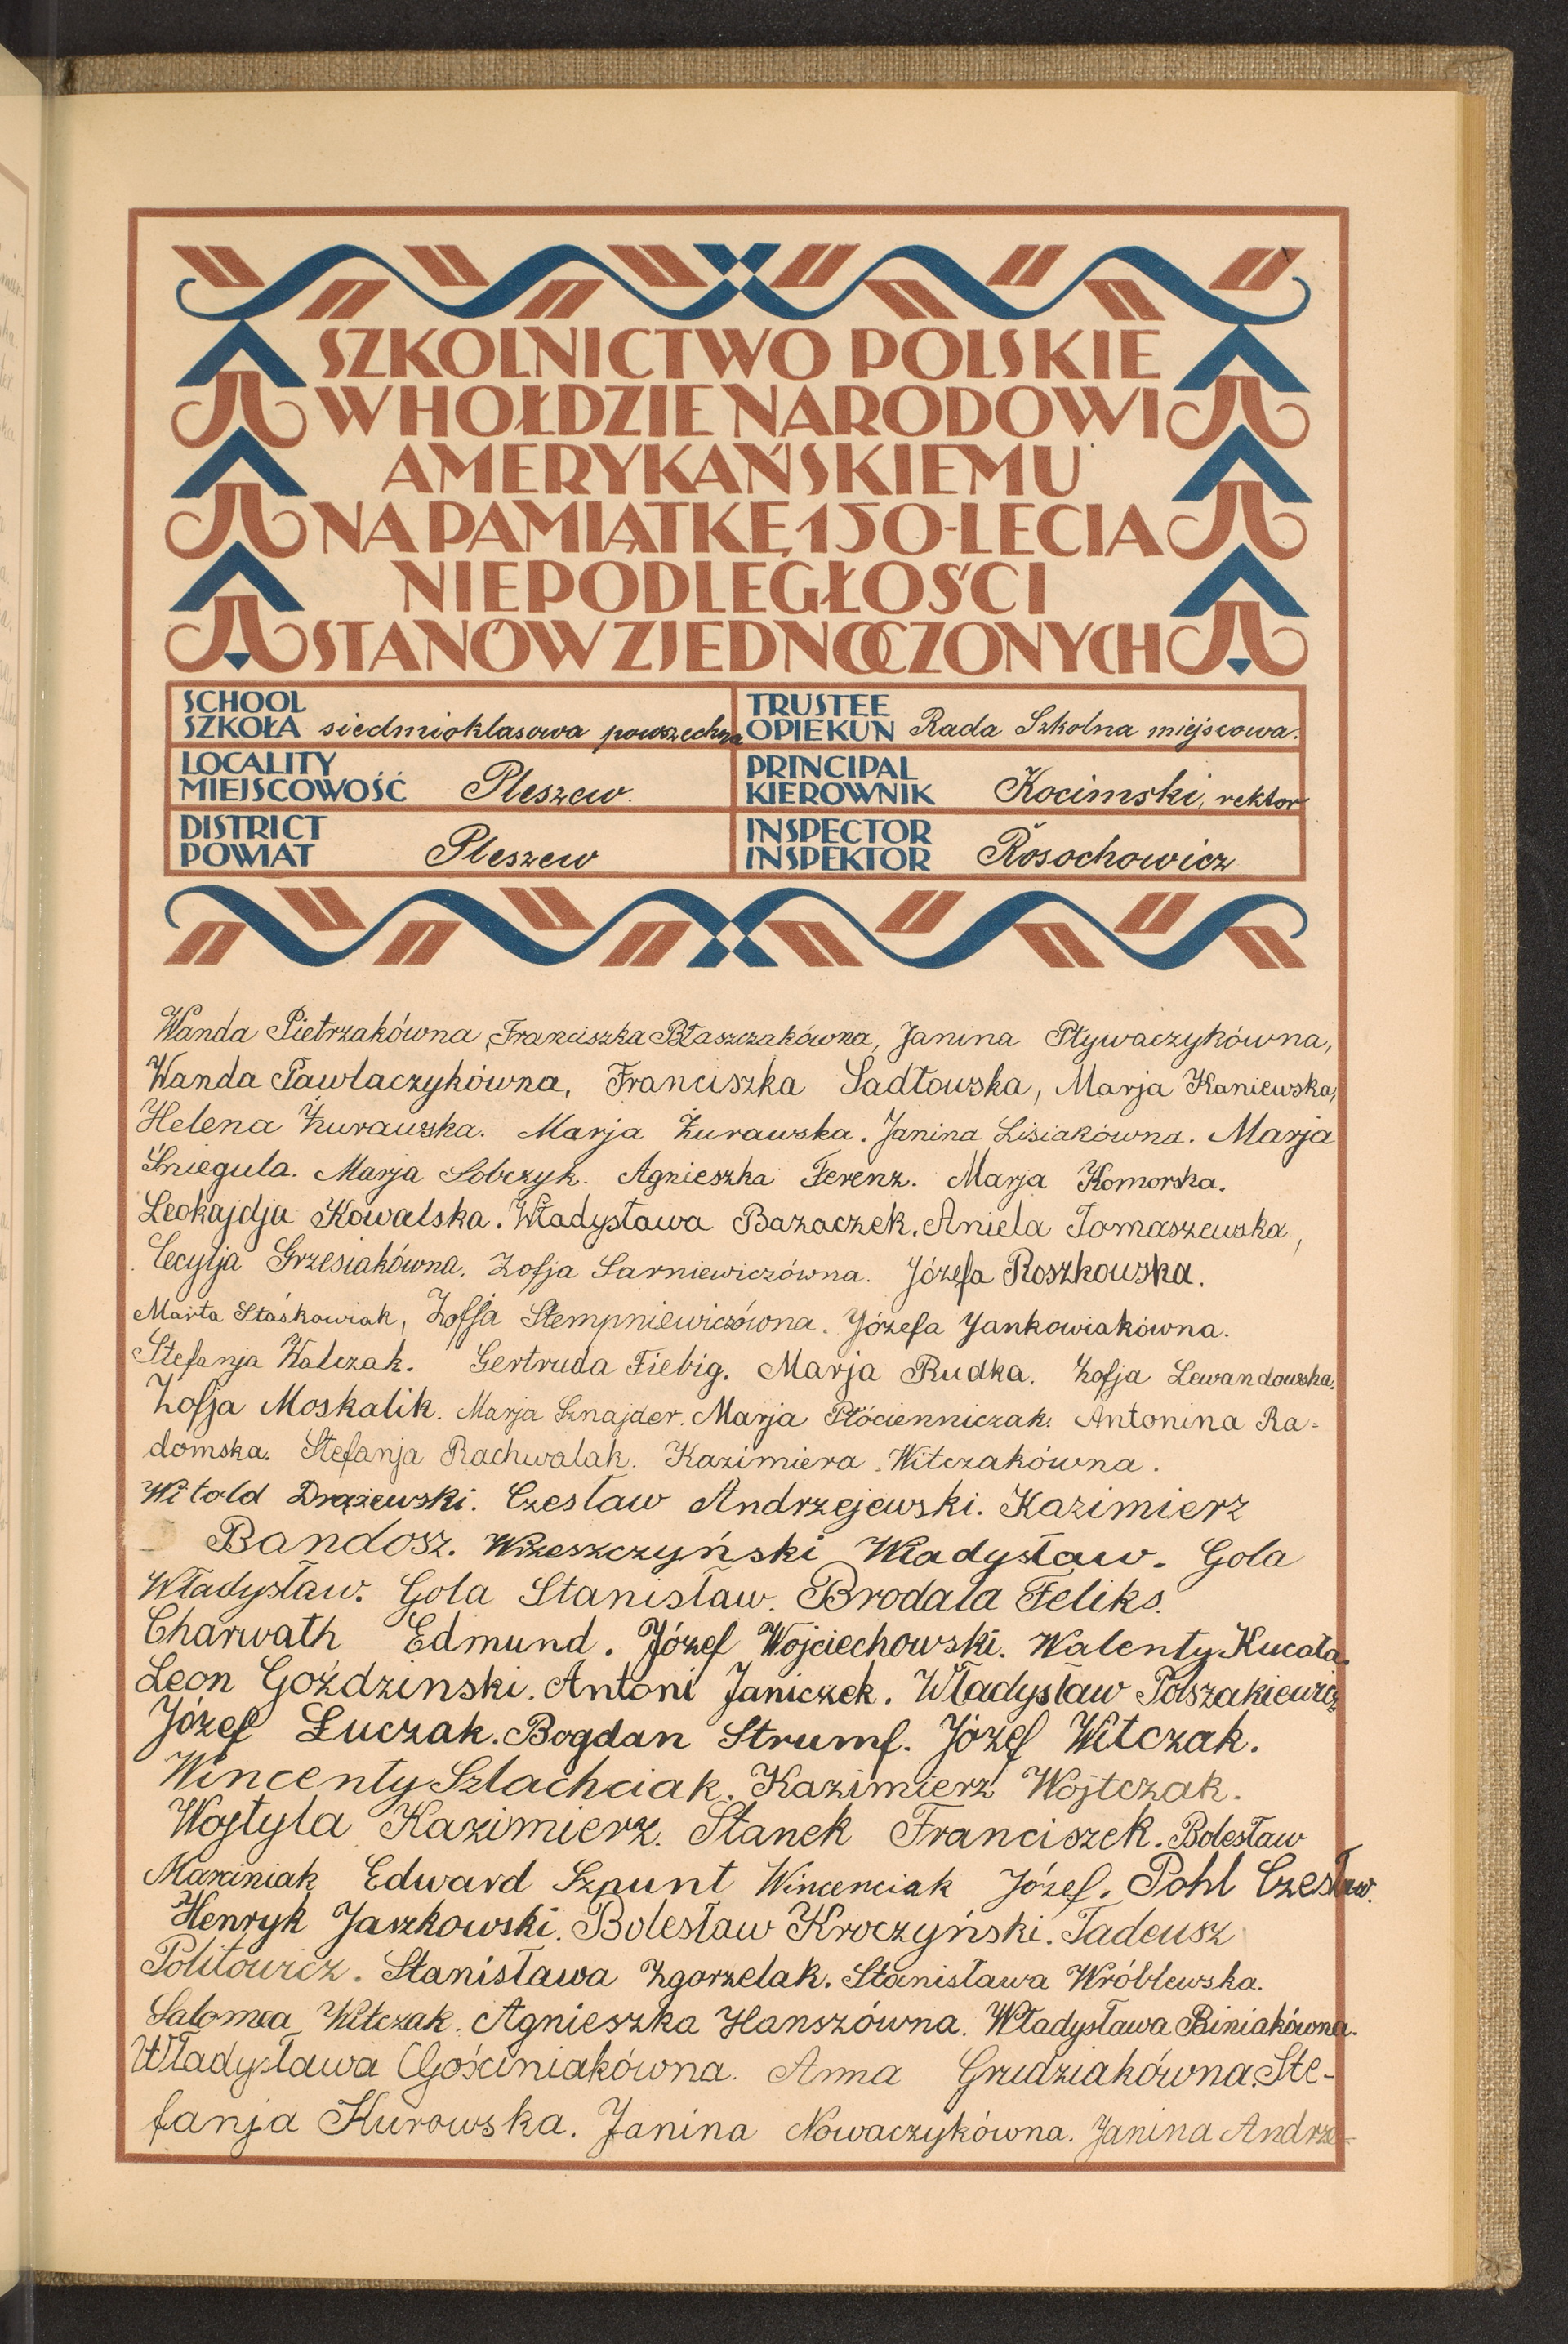 SZKOLNICTWO POLSKIE
W HOŁDZIE NARODOWI
AMERYKAŃSKIEMU
NA PAMIĄTKĘ 150-LECIA
NIEPODLEGŁOŚCI
STANÓW ZJEDNOCZONYCH
SCHOOL
SZKOŁA siedmioklasowa powszechna
TRUSTEE
OPIEKUN Rada Szkolna miejscowa.
LOCALITY
MIEJSCOWOŚĆ Pleszew.
PRINCIPAL
KIEROWNIK Kocimski, rektor
DISTRICT
POWIAT Pleszew
INSPECTOR
INSPEKTOR Rosochowicz
Wanda Pietrzakówna, Franciszka Błaszczakówna, Janina Pływaczykówna,
Wanda Pawlaczykówna, Franciszka Sadłowska, Marja Kaniewska,
Helena Żurawska. Marja Żurawska. Janina Lisiakówna. Marja
Śniegula. Marja Sobczyk. Agnieszka Ferenz. Marja Komorska.
Leokajdja Kowalska. Władysława Bazaczek. Aniela Tomaszewska,
Cecylja Grzesiakówna. Zofja Sarniewiczówna. Józefa Roszkowska.
Marta Staśkowiak, Zofja Stempniewiczówna. Józefa Jankowiakówna.
Stefanja Walczak. Gertruda Fiebig. Marja Rudka. Zofja Lewandowska.
Zofja Moskalik. Marja Sznajder. Marja Płócienniczak. Antonina Ra-
domska. Stefanja Rachwalak. Kazimiera Witczakówna.
Witold Drążewski. Czesław Andrzejewski. Kazimierz
Bandosz. Wrzeszczyński Władysław. Gola
Władysław. Gola Stanisław. Brodala Feliks.
Charwath Edmund. Józef Wojciechowski. Walenty Kucała.
Leon Goździnski. Antoni Janiczek. Władysław Polszakiewicz
Józef Łuczak. Bogdan Strumf. Józef Witczak.
Wincenty Szlachciak. Kazimierz Wojtczak.
Wojtyla Kazimierz. Stanek Franciszek. Bolesław
Marciniak Edward Szpunt Wincenciak Józef. Pohl Czesław.
Henryk Jaszkowski. Bolesław Kroczyński. Tadeusz
Politowicz. Stanisława Zgorzelak. Stanisława Wróblewska.
Salomea Witczak. Agnieszka Hanszówna. Władysława Biniakówna.
Władysława Gościniakówna. Anna Grudziakówna. Ste-
fanja Kurowska. Janina Nowaczykówna. Janina Andrze-